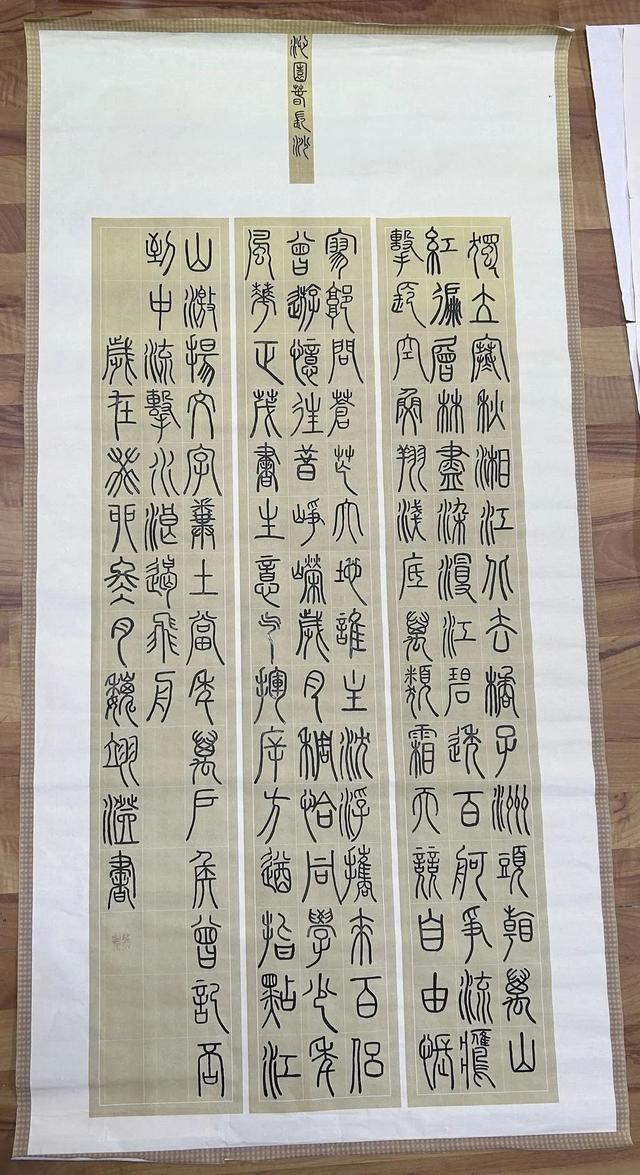 沁園春長沙
獨立寒秋湘江北去橘子洲頭看萬山
紅遍層林盡染漫江碧透百舸爭流鷹
擊長空魚翔淺底萬類霜天競自由悵
寥廓問蒼茫大地誰主沈浮攜來百侶
曾遊憶往昔崢嶸歲月稠恰同學少年
風華正茂書生意气揮斥方遒指點江
山激揚文字糞土當年萬戶侯曾記否
到中流擊水浪遏飛舟
歲在癸卯月魏翊瀅書